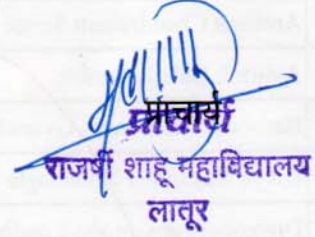 प्राचार्य
राजर्षी शाहू महाविद्यालय
लातूर